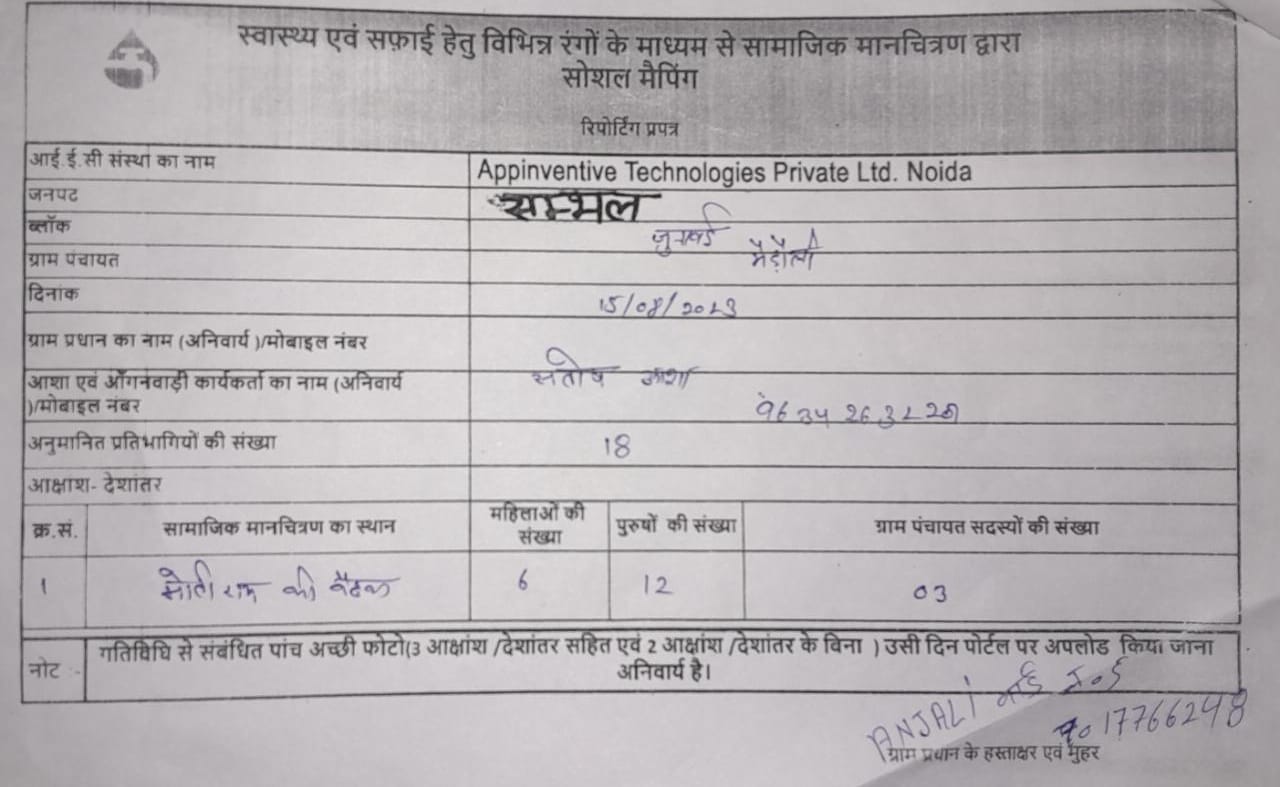 स्वास्थ्य एवं सफ़ाई हेतु विभिन्न रंगों के माध्यम से सामाजिक मानचित्रण द्वारा
सोशल मैपिंग
रिपोर्टिंग प्रपत्र
आई.ई.सी संस्था का नाम Appinventive Technologies Private Ltd. Noida
जनपट सम्भल
ब्लॉक
ग्राम पंचायत
दिनांक 15/08/2023
ग्राम प्रधान का नाम (अनिवार्य )/मोबाइल नंबर
आशा एवं आँगनवाड़ी कार्यकर्ता का नाम (अनिवार्य संतोष आशा
)/मोबाइल नंबर
अनुमानित प्रतिभागियों की संख्या 18
आक्षांश- देशांतर
क्र.सं. सामाजिक मानचित्रण का स्थान महिलाओं की संख्या पुरुषों की संख्या ग्राम पंचायत सदस्यों की संख्या
1 मोती राम की बैठक 6 12 03
नोट :- गतिविधि से संबंधित पांच अच्छी फोटो(3 आक्षांश /देशांतर सहित एवं 2 आक्षांश /देशांतर के विना ) उसी दिन पोर्टल पर अपलोड किया जाना
अनिवार्य है।
ANJALI
17766248
ग्राम प्रधान के हस्ताक्षर एवं मुहर